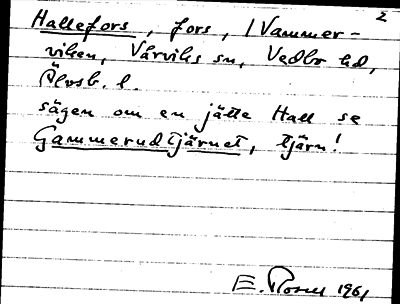 2
Hallefors, fors, i Vammer-
viken, Vårviks sn, Vedbo hd,
Älvsb. l.
sägen om en jätte Hall se
Gammerudtjärnet, tjärn!
E. Rosell 1961